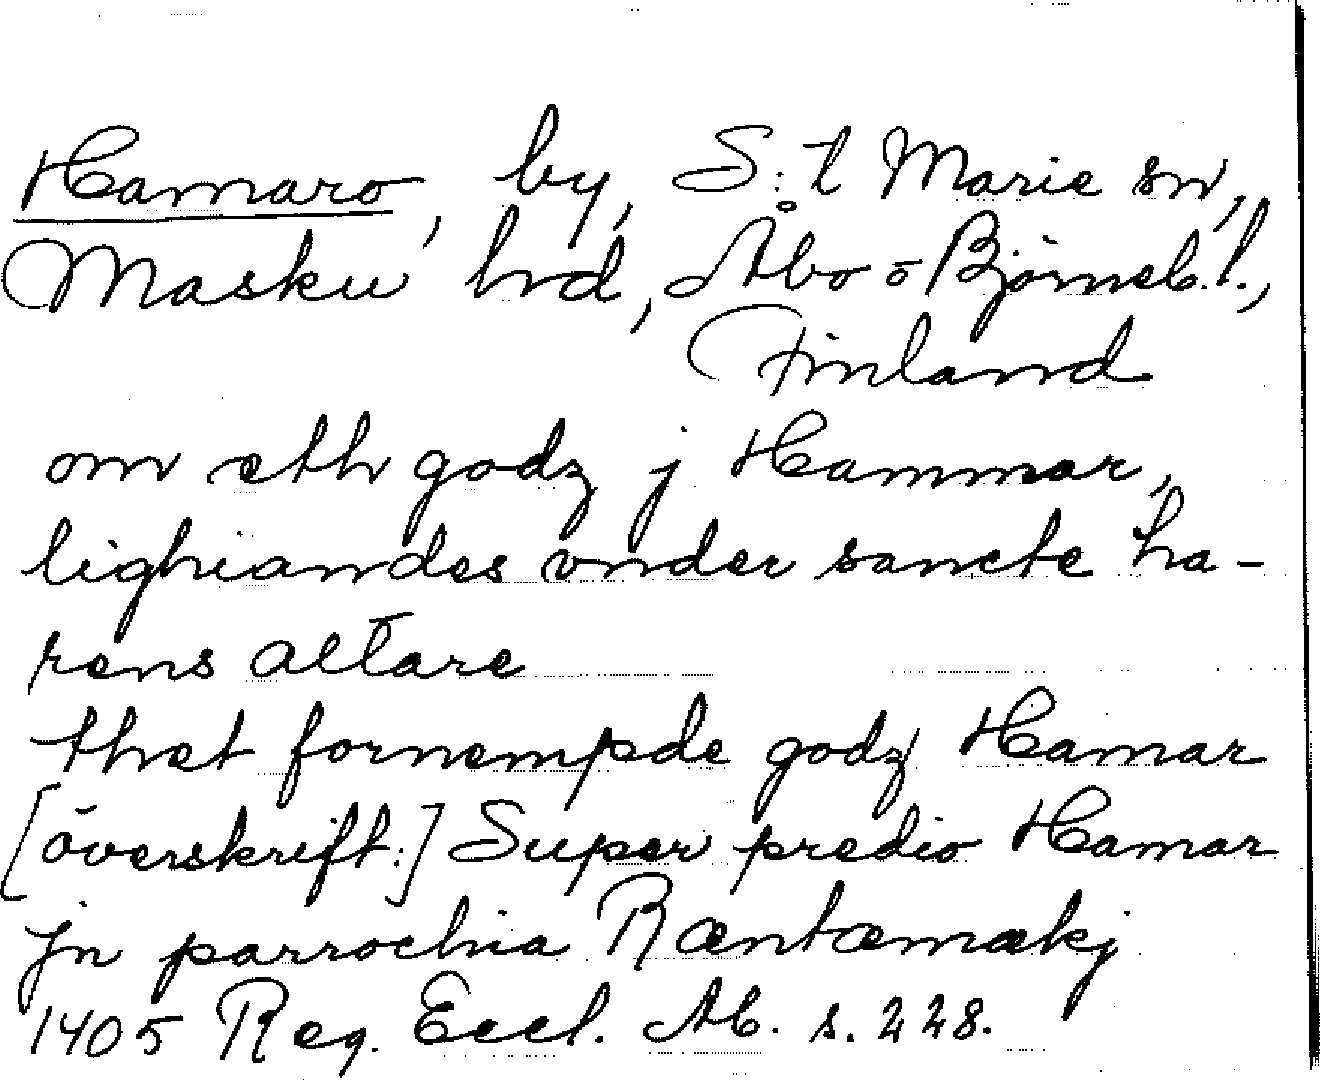 Hamaro, by, S:t Marie sn,
Masku hd, Åbo o Björneb. l.,
Finland
om eth godz j Hammar,
lighiandes vnder sancte ha-
rens altare
thet fornempde godz Hamar
[överskrift:] Super predio Hamar
jn parrochia Ræntæmækj
1405 Reg. Eccl. Ab. s. 228.